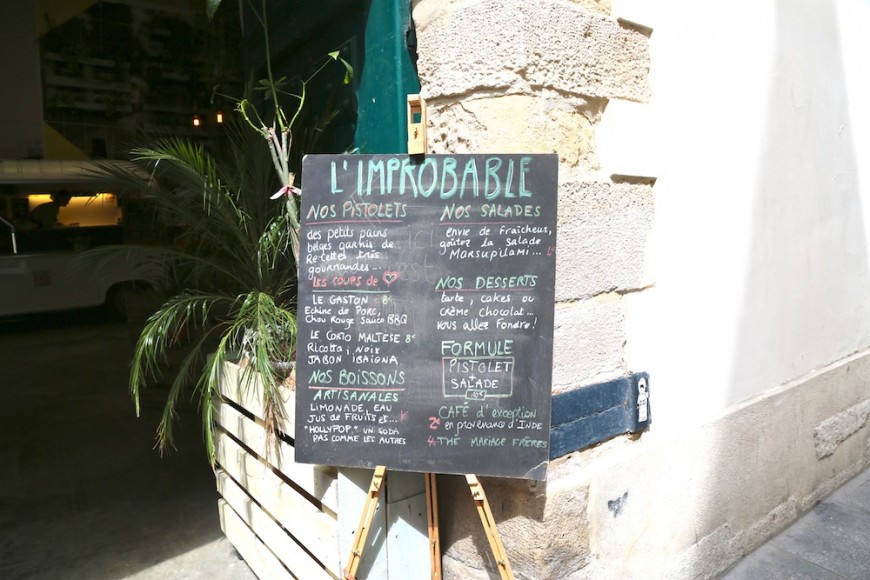 L'IMPROBABLE
NOS PISTOLETS
des petits pains
belges garnis de
Recettes très
gourmandes...
Les coups de ♡
LE GASTON 8€
Echine de Porc,
Chou Rouge Sauce BBQ
LE CORTO MALTESE 8€
Ricotta, NOIX
JABON IBAIGNA
NOS BOISSONS
ARTISANALES
LIMONADE, EAU
JUS DE FRUITS ET...
"HOLLYPOP" UN SODA
PAS COMME LES AUTRES
NOS SALADES
envie de Fraîcheur,
goûtez la SALADE
MARSUPILAMI...
NOS DESSERTS
tarte, cakes ou
CRÈME CHOCOLAT...
VOUS ALLEZ FONDRE!
FORMULE
PISTOLET
+
SALADE
CAFÉ d'exception
2€ en provenance d'INDE
4€ THÉ MARIAGE FRÈRES